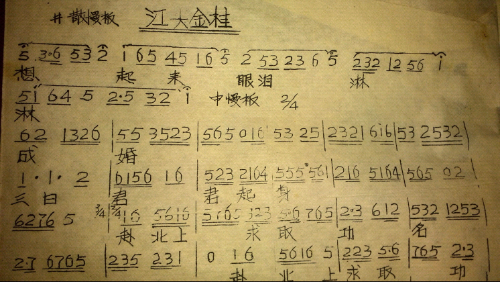 サ 散慢板 江大金桂
5 3·6 53 2 1 65 45 16 5 2 53 23 6 5 232 12 56 1
想 起 来 眼泪 淋
51 64 5 2·5 32 1 中慢板 2/4
淋
62 1326 | 55 3523 | 565 016 | 53 25 | 2321 616 | 53 2532 |
成 婚
1·1· 2 | 6156 16 | 523 2164 | 555 561 | 216 5164 | 565 02 |
三日 君 君起身
6276 5 | 16 5616 | 5765 323 | 5·6 765 | 2·3 612 | 532 1253 |
赴北上 求取 功 名
2·7 6765 | 235 231 | 0 16 | 5616 5 | 223 5·6 | 765 2·3 |
赴 北上 求取 功